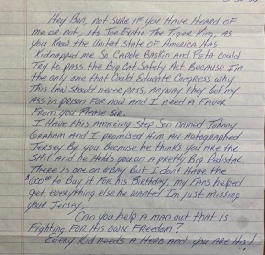 Hey Bun, not sure if you Have Heard of
me or not, its Joe Exotic The Tiger King, as
you Know the United State of America Has
Kidnapped me So Carole Baskin and Peta could
Try to pass the Big Cat Safety Act Because Im
the only one that Could Educate Congress why
This law Should never pass, Anyway they but my
Ass in person for now and I need A Favor
From you Please Sir.
I Have this Amazing Step Son named Johnny
Graham and I promised Him An Autographed
Jersey By you Because he thinks you are the
Shit and he Holds you on a pretty Big Pedistal
There is one on eBay But I don't Have the
to Buy it For his Birthday, my Fans helped
get everything else he wanted Im Just missing
your Jersey.
Can you help a man out that is
Fighting For His own Freedom?
Every Kid needs A Hero and you Are His!